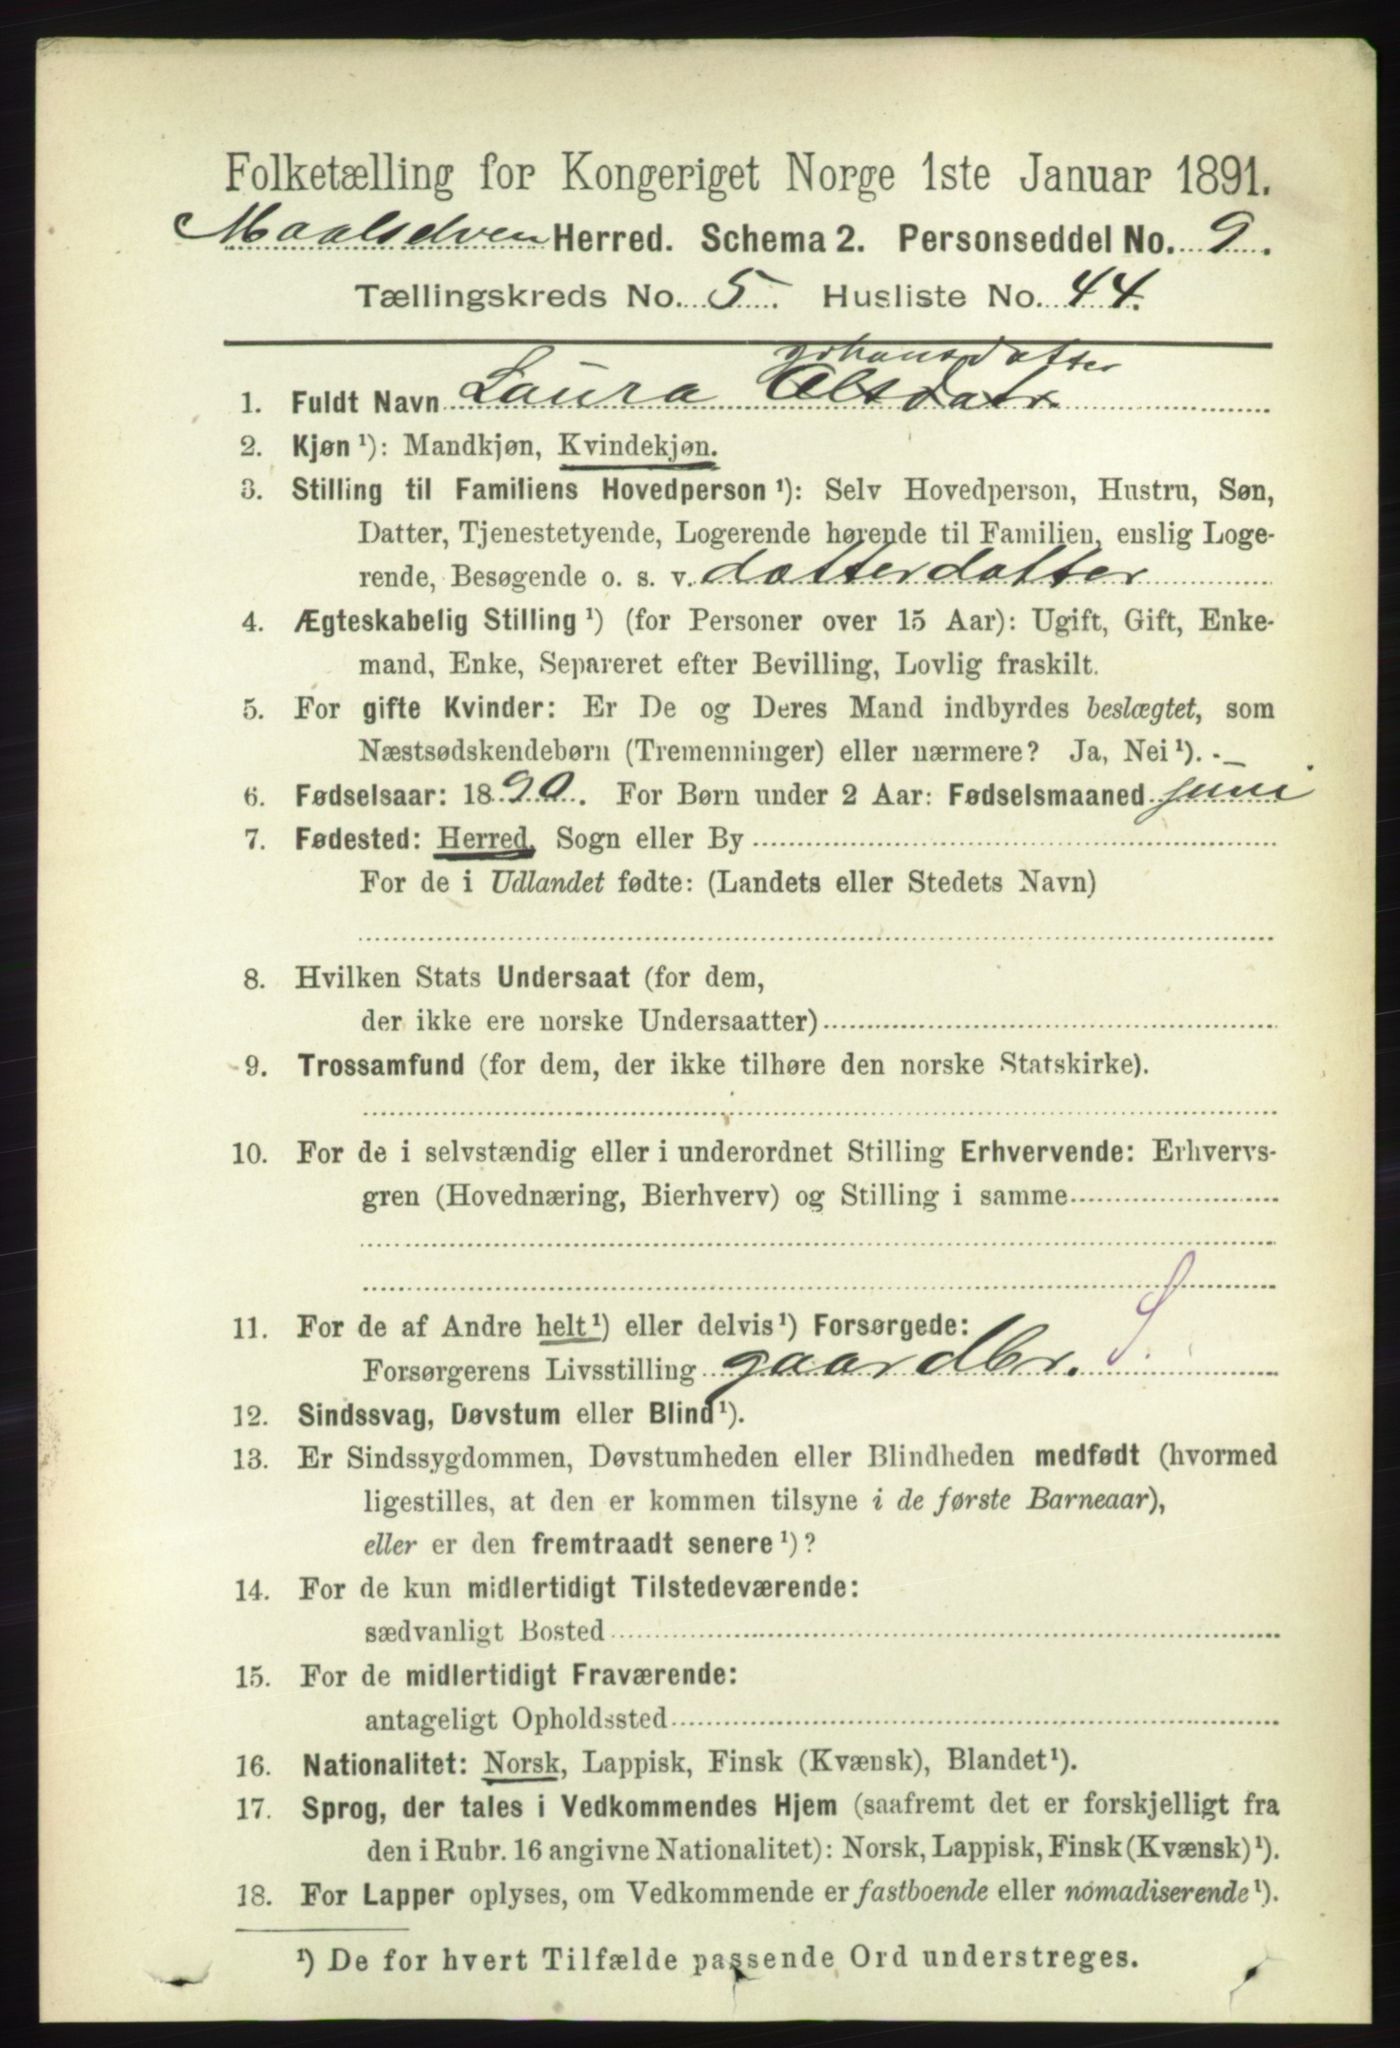 Folketælling for Kongeriget Norge 1ste Januar 1891.
Maalselven Herred. Schema 2. Personseddel No. 9.
Tællingskreds No. 5. Husliste No. 44.
Johansdatter
1. Fuldt Navn Laura Olsdatr
2. Kjøn ¹): Mandkjøn, Kvindekjøn.
3. Stilling til Familiens Hovedperson ¹): Selv Hovedperson, Hustru, Søn,
Datter, Tjenestetyende, Logerende hørende til Familien, enslig Loge-
rende, Besøgende o. s. v. datterdatter
4. Ægteskabelig Stilling ¹) (for Personer over 15 Aar): Ugift, Gift, Enke-
mand, Enke, Separeret efter Bevilling, Lovlig fraskilt.
5. For gifte Kvinder: Er De og Deres Mand indbyrdes beslægtet, som
Næstsødskendebørn (Tremenninger) eller nærmere? Ja, Nei ¹). -
6. Fødselsaar: 1890. For Børn under 2 Aar: Fødselsmaaned juni
7. Fødested: Herred, Sogn eller By
For de i Udlandet fødte: (Landets eller Stedets Navn)
8. Hvilken Stats Undersaat (for dem,
der ikke ere norske Undersaatter)
9. Trossamfund (for dem, der ikke tilhøre den norske Statskirke).
10. For de i selvstændig eller i underordnet Stilling Erhvervende: Erhvervs-
gren (Hovednæring, Bierhverv) og Stilling i samme
11. For de af Andre helt ¹) eller delvis ¹) Forsørgede:
Forsørgerens Livsstilling gaardbr. S.
12. Sindssvag, Døvstum eller Blind ¹).
13. Er Sindssygdommen, Døvstumheden eller Blindheden medfødt (hvormed
ligestilles, at den er kommen tilsyne i de første Barneaar),
eller er den fremtraadt senere ¹)?
14. For de kun midlertidigt Tilstedeværende:
sædvanligt Bosted
15. For de midlertidigt Fraværende:
antageligt Opholdssted
16. Nationalitet: Norsk, Lappisk, Finsk (Kvænsk), Blandet ¹).
17. Sprog, der tales i Vedkommendes Hjem (saafremt det er forskjelligt fra
den i Rubr. 16 angivne Nationalitet): Norsk, Lappisk, Finsk (Kvænsk) ¹).
18. For Lapper oplyses, om Vedkommende er fastboende eller nomadiserende ¹).
¹) De for hvert Tilfælde passende Ord understreges.